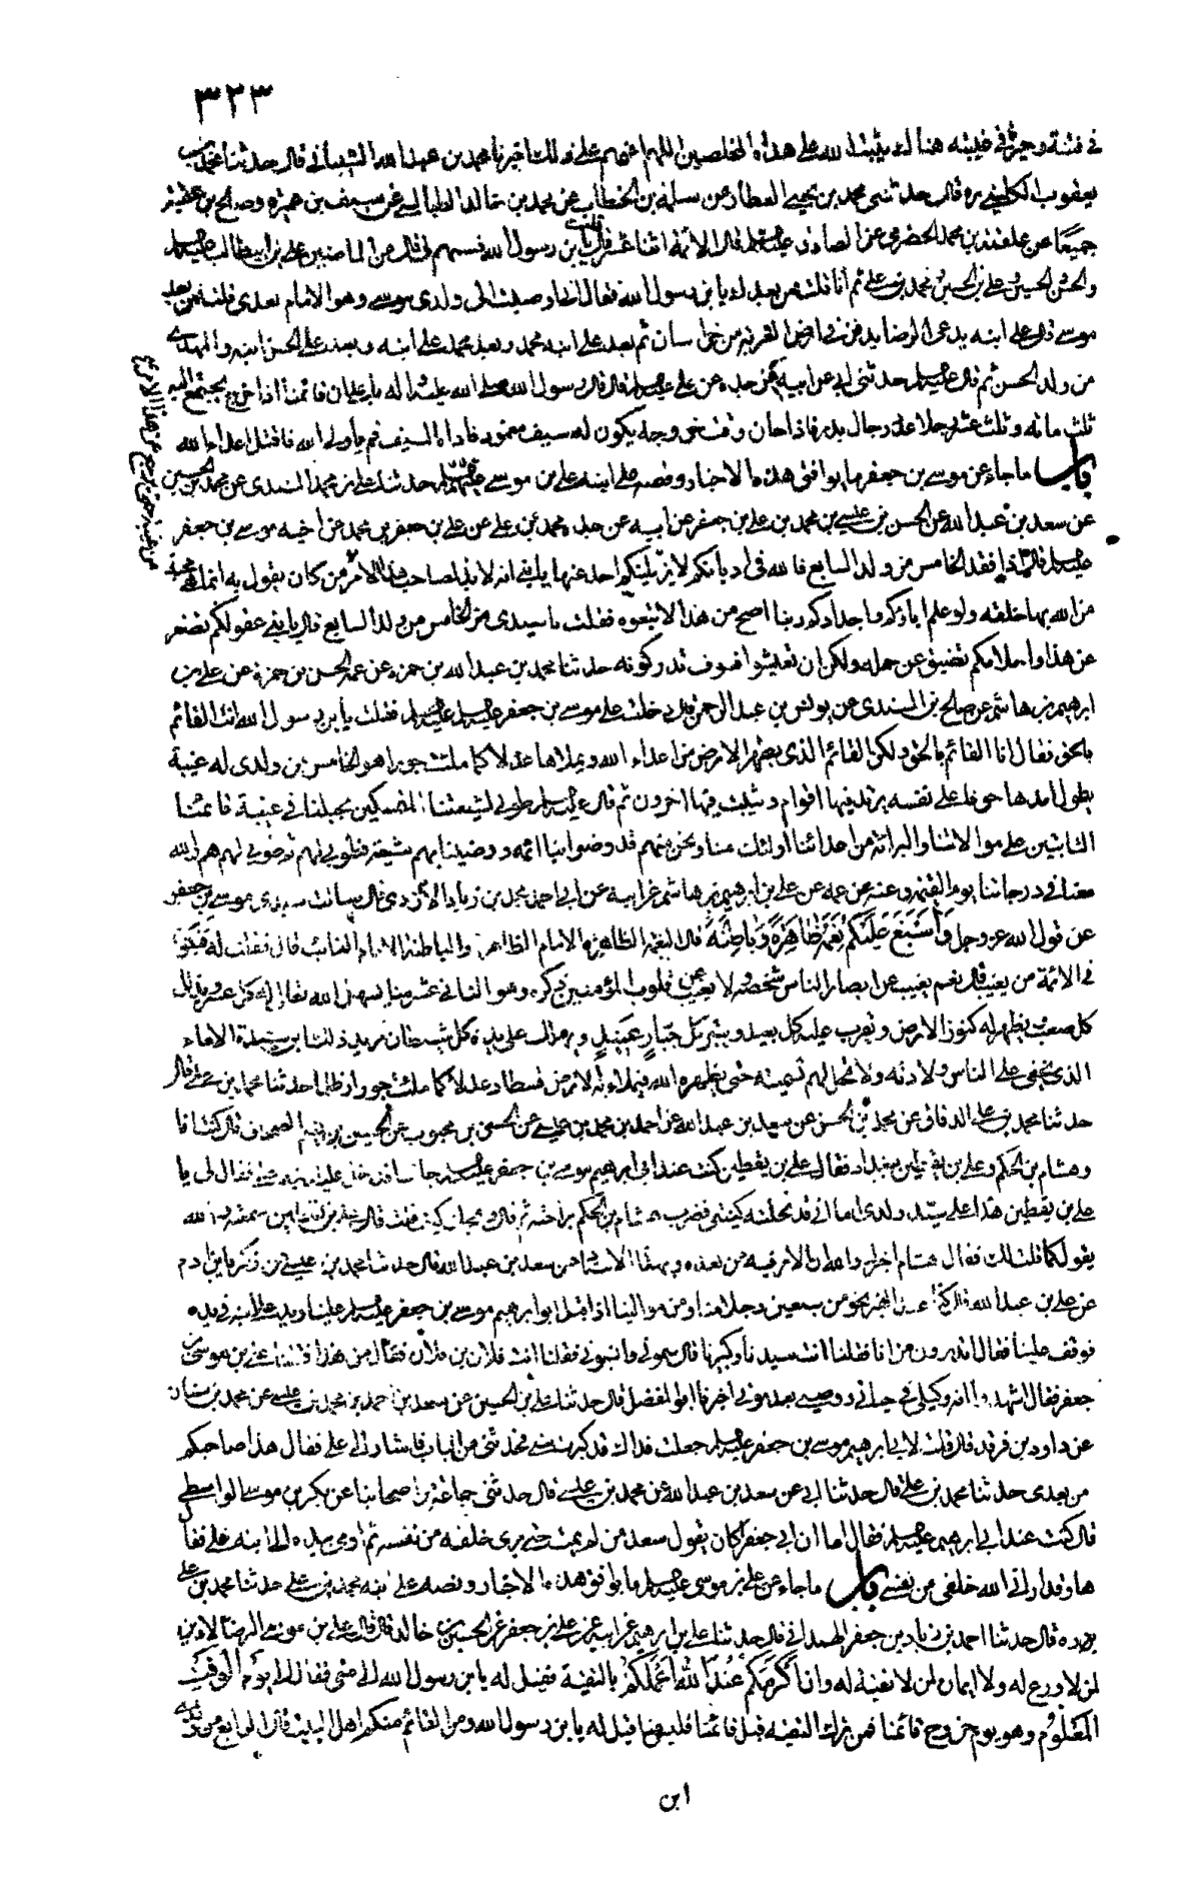 ٣٢٣
في فتنة وحيرة في غيبته هناك يثبت الله على هذه المخلصين اللهم اعنهم على ذلك اخبرنا محمد بن عبد الله الشيباني قال حدثنا محمد بن
يعقوب الكليني ره قال حدثني محمد بن يحيى العطار عن سلمة بن الخطاب عن محمد بن خالد الطيالسي عن سيف بن عميرة وصالح بن عقبة
جميعا عن علقمة بن محمد الحضرمي عن الصادق عليه السلم قال الائمة اثنا عشر قلت يا بن رسول الله فسمهم لي قال من الماضين علي بن ابيطالب عليه السلم
والحسن والحسين وعلي بن الحسين ومحمد بن علي ثم انا قلت من بعدك يا بن رسول الله فقال اني اوصيت الى ولدي موسى وهو الامام بعدي قلت فمن بعد
موسى قال علي ابنه يدعى الرضا يدفن في ارض الغربة من خراسان ثم بعد علي ابنه محمد وبعد محمد علي ابنه وبعد علي الحسن ابنه والمهدي
من ولد الحسن ثم قال عليه السلم حدثني ابي عن ابيه عن جده عن علي عليه السلم قال قال رسول الله صلى الله عليه واله يا علي ان قائمنا اذا خرج يجتمع اليه
ثلث مائة وثلث عشر رجلا عدد رجال بدر فاذا حان وقت خروجه يكون له سيف مغمود فاداه السيف قم يا ولي الله فاقتل اعداء الله
باب ما جاء عن موسى بن جعفر ما يوافق هذه الاخبار ونصه على ابنه علي بن موسى عليهما السلم حدثنا علي بن محمد السندي عن محمد بن الحسين
عن سعد بن عبد الله عن الحسن بن عيسى بن محمد بن علي بن جعفر عن ابيه عن جده محمد بن علي عن علي بن جعفر بن محمد عن اخيه موسى بن جعفر
عليه السلم قال اذا فقد الخامس من ولد السابع فالله في اديانكم لا يزيلنكم احد عنها يا بني انه لا بد لصاحب هذا الامر من غيبة حتى يرجع عن هذا الامر من كان يقول به انما هي محنة
من الله بها خلقه ولو علم اباؤكم واجدادكم دينا اصح من هذا لاتبعوه فقلت يا سيدي من الخامس من ولد السابع قال يا بني عقولكم تصغر
عن هذا واحلامكم تضيق عن حمله ولكن ان تعيشوا فسوف تدركونه حدثنا محمد بن عبد الله بن حمزة عن عمه الحسن بن حمزة عن علي بن
ابراهيم بن هاشم عن صالح بن السندي عن يونس بن عبد الرحمن قال دخلت على موسى بن جعفر عليه السلم فقلت يا بن رسول الله انت القائم
بالحق فقال انا القائم بالحق ولكن القائم الذي يطهر الارض من اعداء الله ويملاها عدلا كما ملئت جورا هو الخامس من ولدي له غيبة
يطول امدها خوفا على نفسه يرتد فيها اقوام ويثبت فيها اخرون ثم قال عليه السلم طوبى لشيعتنا المتمسكين بحبلنا في غيبة قائمنا
الثابتين على موالاتنا والبراءة من اعدائنا اولئك منا ونحن منهم قد رضوا بنا ائمة ورضينا بهم شيعة فطوبى لهم ثم طوبى لهم هم والله
معنا في درجاتنا يوم القيمة وعنه عن عمه عن علي بن ابراهيم بن هاشم عن ابيه عن ابي احمد محمد بن زياد الازدي قال سالت سيدي موسى بن جعفر
عن قول الله عز وجل وَأَسْبَغَ عَلَيْكُمْ نِعَمَهُ ظَاهِرَةً وَبَاطِنَةً قال النعمة الظاهرة الامام الظاهر والباطنة الامام الغائب قال فقلت له فيكون
في الائمة من يغيب قال نعم يغيب عن ابصار الناس شخصه ولا يغيب عن قلوب المؤمنين ذكره وهو الثاني عشر منا يسهل الله تعالى له كل عسر ويذلل
كل صعب يظهر له كنوز الارض ويقرب عليه كل بعيد ويتبر كل جبار عنيد ويهلك على يده كل شيطان مريد ذلك ابن سيدة الاماء
الذي يخفى على الناس ولادته ولا تحل لهم تسميته حتى يظهره الله فيملا به الارض قسطا وعدلا كما ملئت جورا وظلما حدثنا محمد بن علي قال
حدثنا محمد بن علي الدقاق عن محمد بن الحسن عن سعد بن عبد الله عن احمد بن محمد بن عيسى عن الحسن بن محبوب عن الحسين بن نعيم الصحاف قال كنت انا
وهشام بن الحكم وعلي بن يقطين ببغداد فقال علي بن يقطين كنت عند ابي ابراهيم موسى بن جعفر عليه السلم جالسا فدخل عليه ابنه علي فقال لي يا
علي بن يقطين هذا علي سيد ولدي اما اني قد نحلته كنيتي فضرب هشام بن الحكم براحته ثم قال ويحك كيف قلت قال علي بن يقطين سمعته والله
يقول كما قلت لك فقال هشام اخبرك والله ان الامر فيه من بعده وبهذا الاسناد عن سعد بن عبد الله قال حدثنا محمد بن عيسى عن زكريا بن ادم
عن علي بن عبد الله قال كنا عند القبر نحو من سبعين رجلا منا ومن موالينا اذ اقبل ابو ابراهيم موسى بن جعفر عليه السلم علينا ويد علي ابنه في يده
فوقف علينا فقال اتدرون من انا فقلنا انت سيدنا وكبيرنا قال سموني وانسبوني فقلنا انت فلان بن فلان فقال من هذا قلنا علي بن موسى بن
جعفر فقال اشهدوا انه وكيلي في حياتي ووصيي بعد موتي اخبرنا ابو المفضل قال حدثنا علي بن الحسين عن سعد بن احمد بن محمد بن عيسى عن محمد بن سنان
عن داود بن فرقد قال قلت لابي ابراهيم موسى بن جعفر عليه السلم جعلت فداك قد كبرت سني فحدثني من الباب فاشار الى علي فقال هذا صاحبكم
من بعدي حدثنا محمد بن علي قال حدثنا ابي عن سعد بن عبد الله عن محمد بن عيسى قال حدثني جماعة من اصحابنا عن بكر بن موسى الواسطي
قال كنت عند ابي ابراهيم عليه السلم فقال اما ان ابي جعفر كان يقول سعد من لم يمت حتى يرى خلفه من نفسه ثم اومى بيده الى ابنه علي فقال
ها وقد اراني الله خلفي من نفسي باب ما جاء عن علي بن موسى عليه السلم ما يوافق هذه الاخبار ونصه على ابنه محمد بن علي حدثنا محمد بن علي
ره قال حدثنا احمد بن زياد بن جعفر الهمداني قال حدثنا علي بن ابراهيم عن ابيه عن علي بن جعفر عن الحسين بن خالد قال قال علي بن موسى الرضا لا دين
لمن لا ورع له ولا ايمان لمن لا تقية له وان اكرمكم عند الله اعملكم بالتقية فقيل له يا بن رسول الله الى متى فقال الى يوم الوقت
المعلوم وهو يوم خروج قائمنا فمن ترك التقية قبل قائمنا فليس منا قيل له يا بن رسول الله ومن القائم منكم اهل البيت قال الرابع من ولدي
ابن